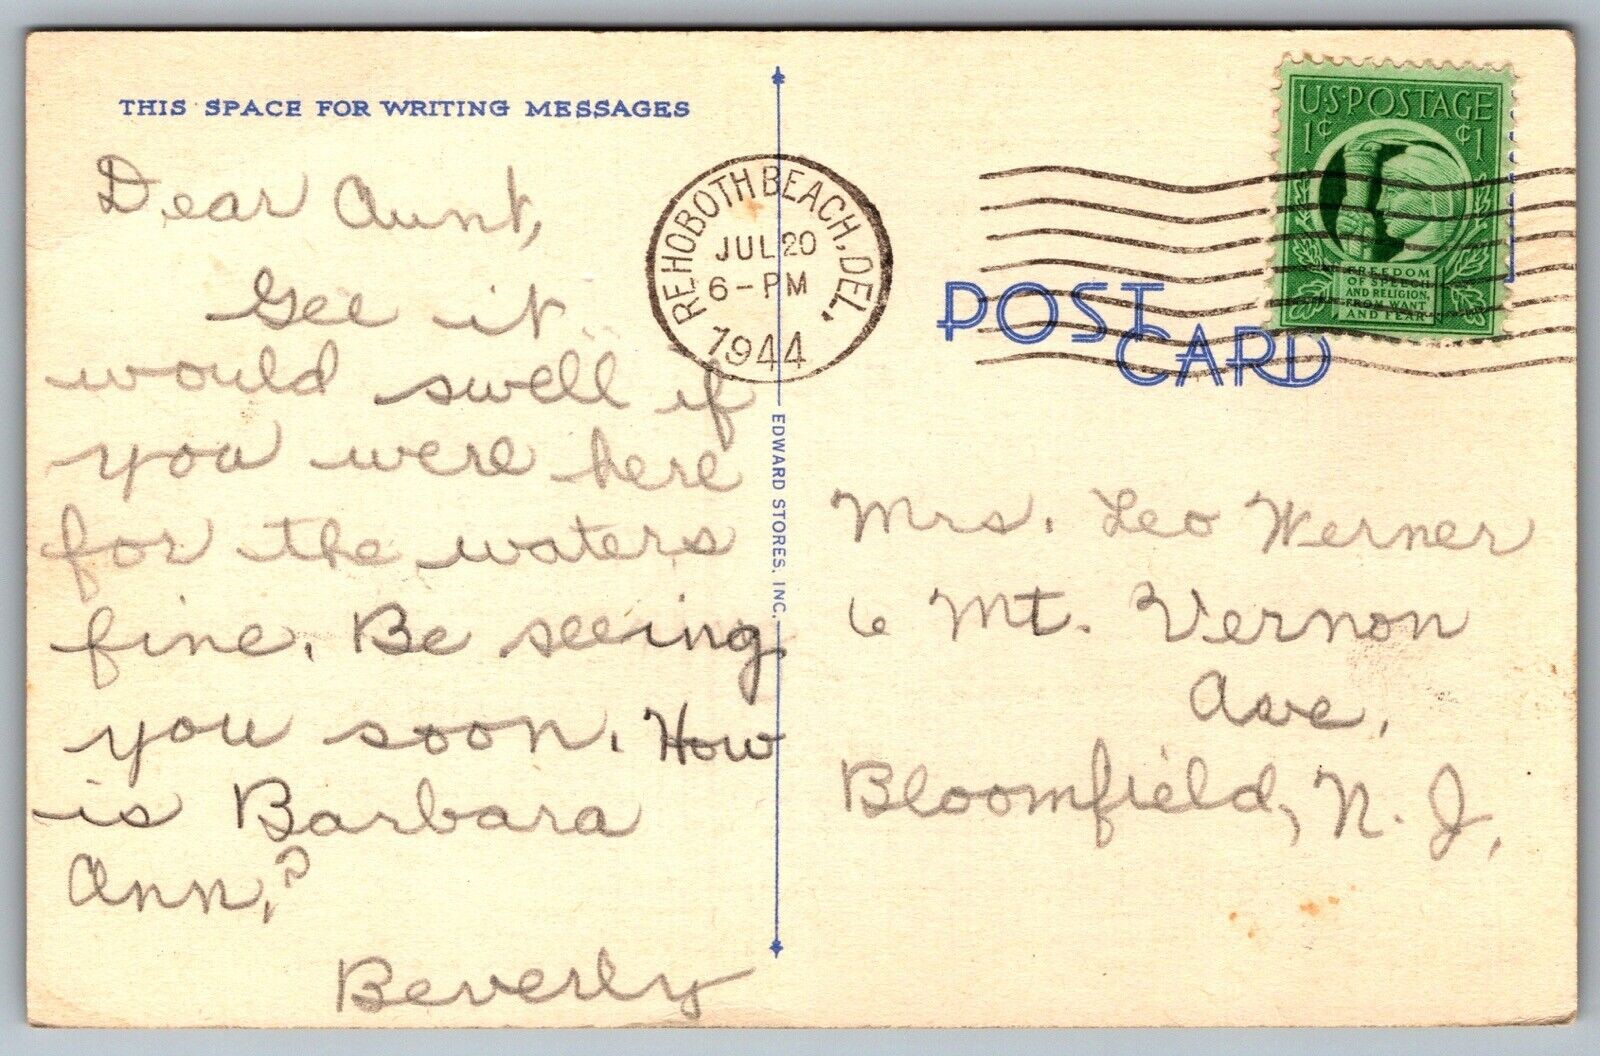 THIS SPACE FOR WRITING MESSAGES
Dear Aunt,
Gee it
would swell if
you were here
for the waters
fine. Be seeing
you soon. How
is Barbara
Ann,?
Beverly
REHOBOTH BEACH, DEL.
JUL 20
6-PM
1944
EDWARD STORES, INC.
U.S. POSTAGE
1¢ ¢1
FREEDOM
OF SPEECH
AND RELIGION,
FROM WANT
AND FEAR
POST
CARD
Mrs. Leo Werner
6 Mt. Vernon
Ave,
Bloomfield, N. J,